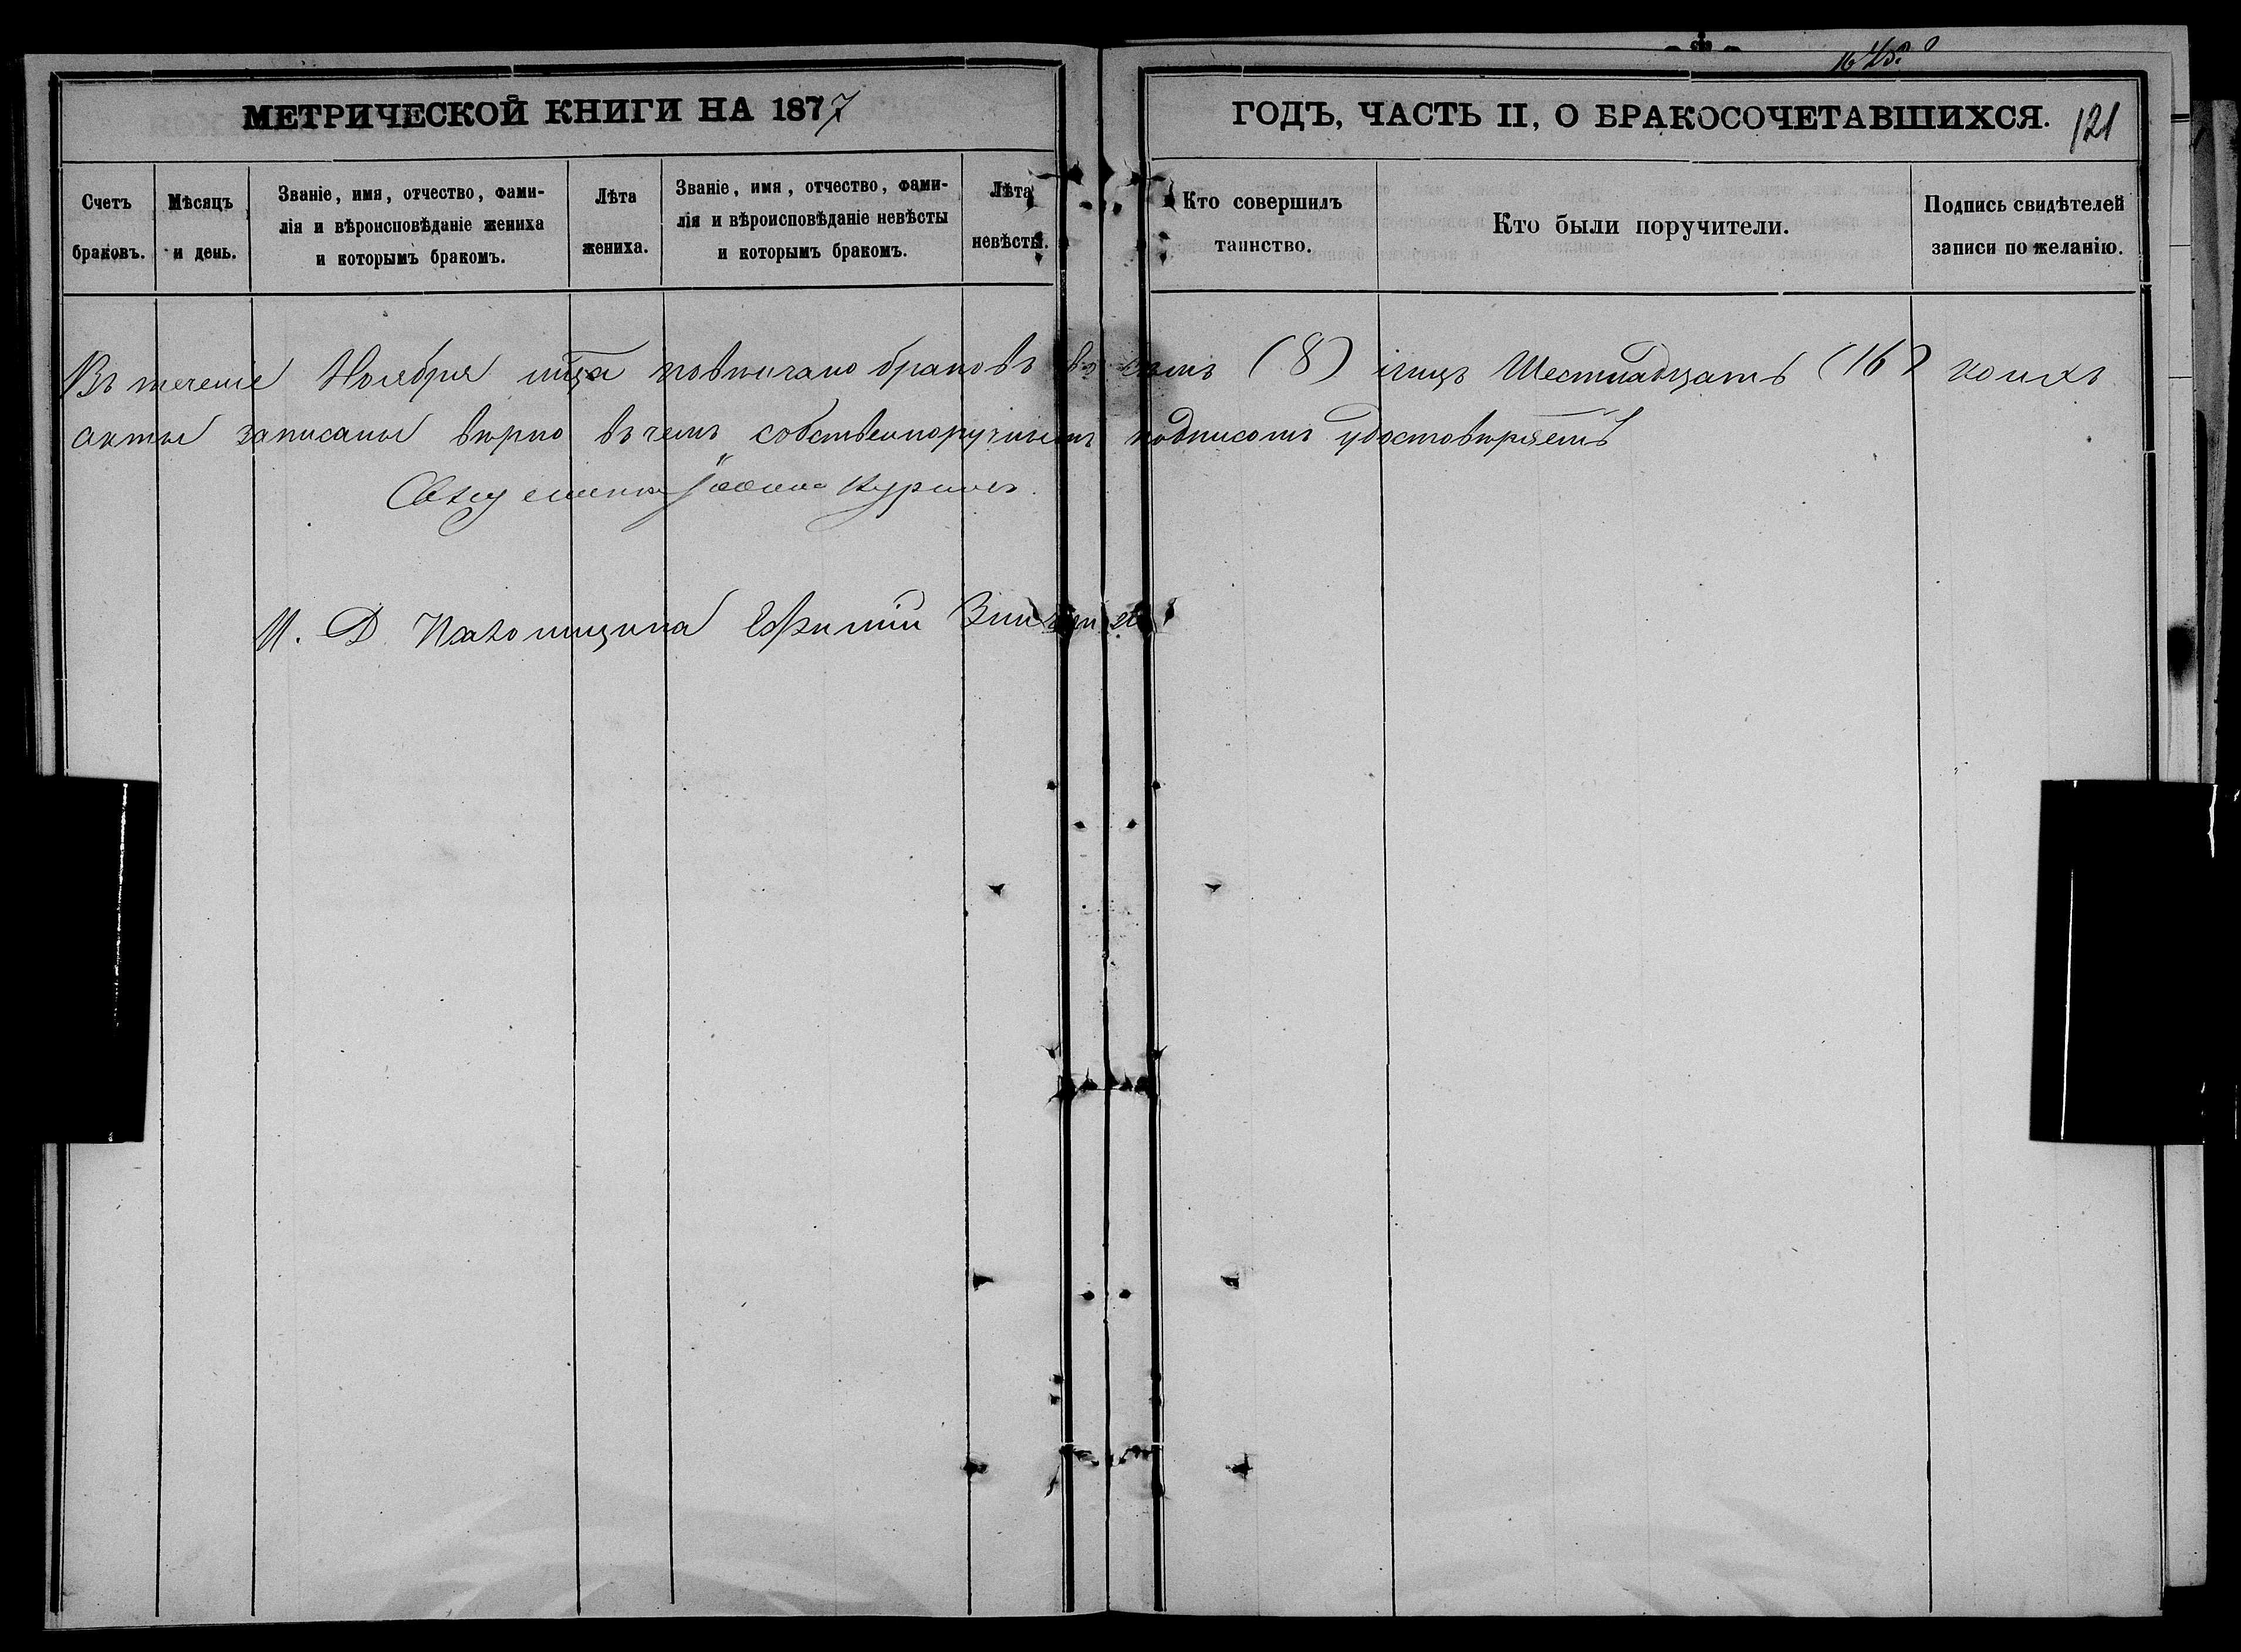 МЕТРИЧЕСКОЙ КНИГИ НА 1877
ГОДЪ, ЧАСТЬ II, О БРАКОСОЧЕТАВШИХСЯ.
121
Счетъ браковъ.
Мѣсяцъ и день.
Званіе, имя, отчество, фами-
лія и вѣроисповѣданіе жениха
и которымъ бракомъ.
Лѣта жениха.
Званіе, имя, отчество, фами-
лія и вѣроисповѣданіе невѣсты
и которымъ бракомъ.
Лѣта невѣсты.
Кто совершилъ таинство.
Кто были поручители.
Подпись свидѣтелей записи по желанію.
Въ теченіе Ноября мца повѣнчано браковъ восемъ (8) лицъ Шестнадцать (16) коихъ
акты записаны вѣрно въ чемъ собственноручнымъ подписомъ удостовѣряетъ
Священникъ Іоаннъ
И. Д. Псаломщика Ефимій